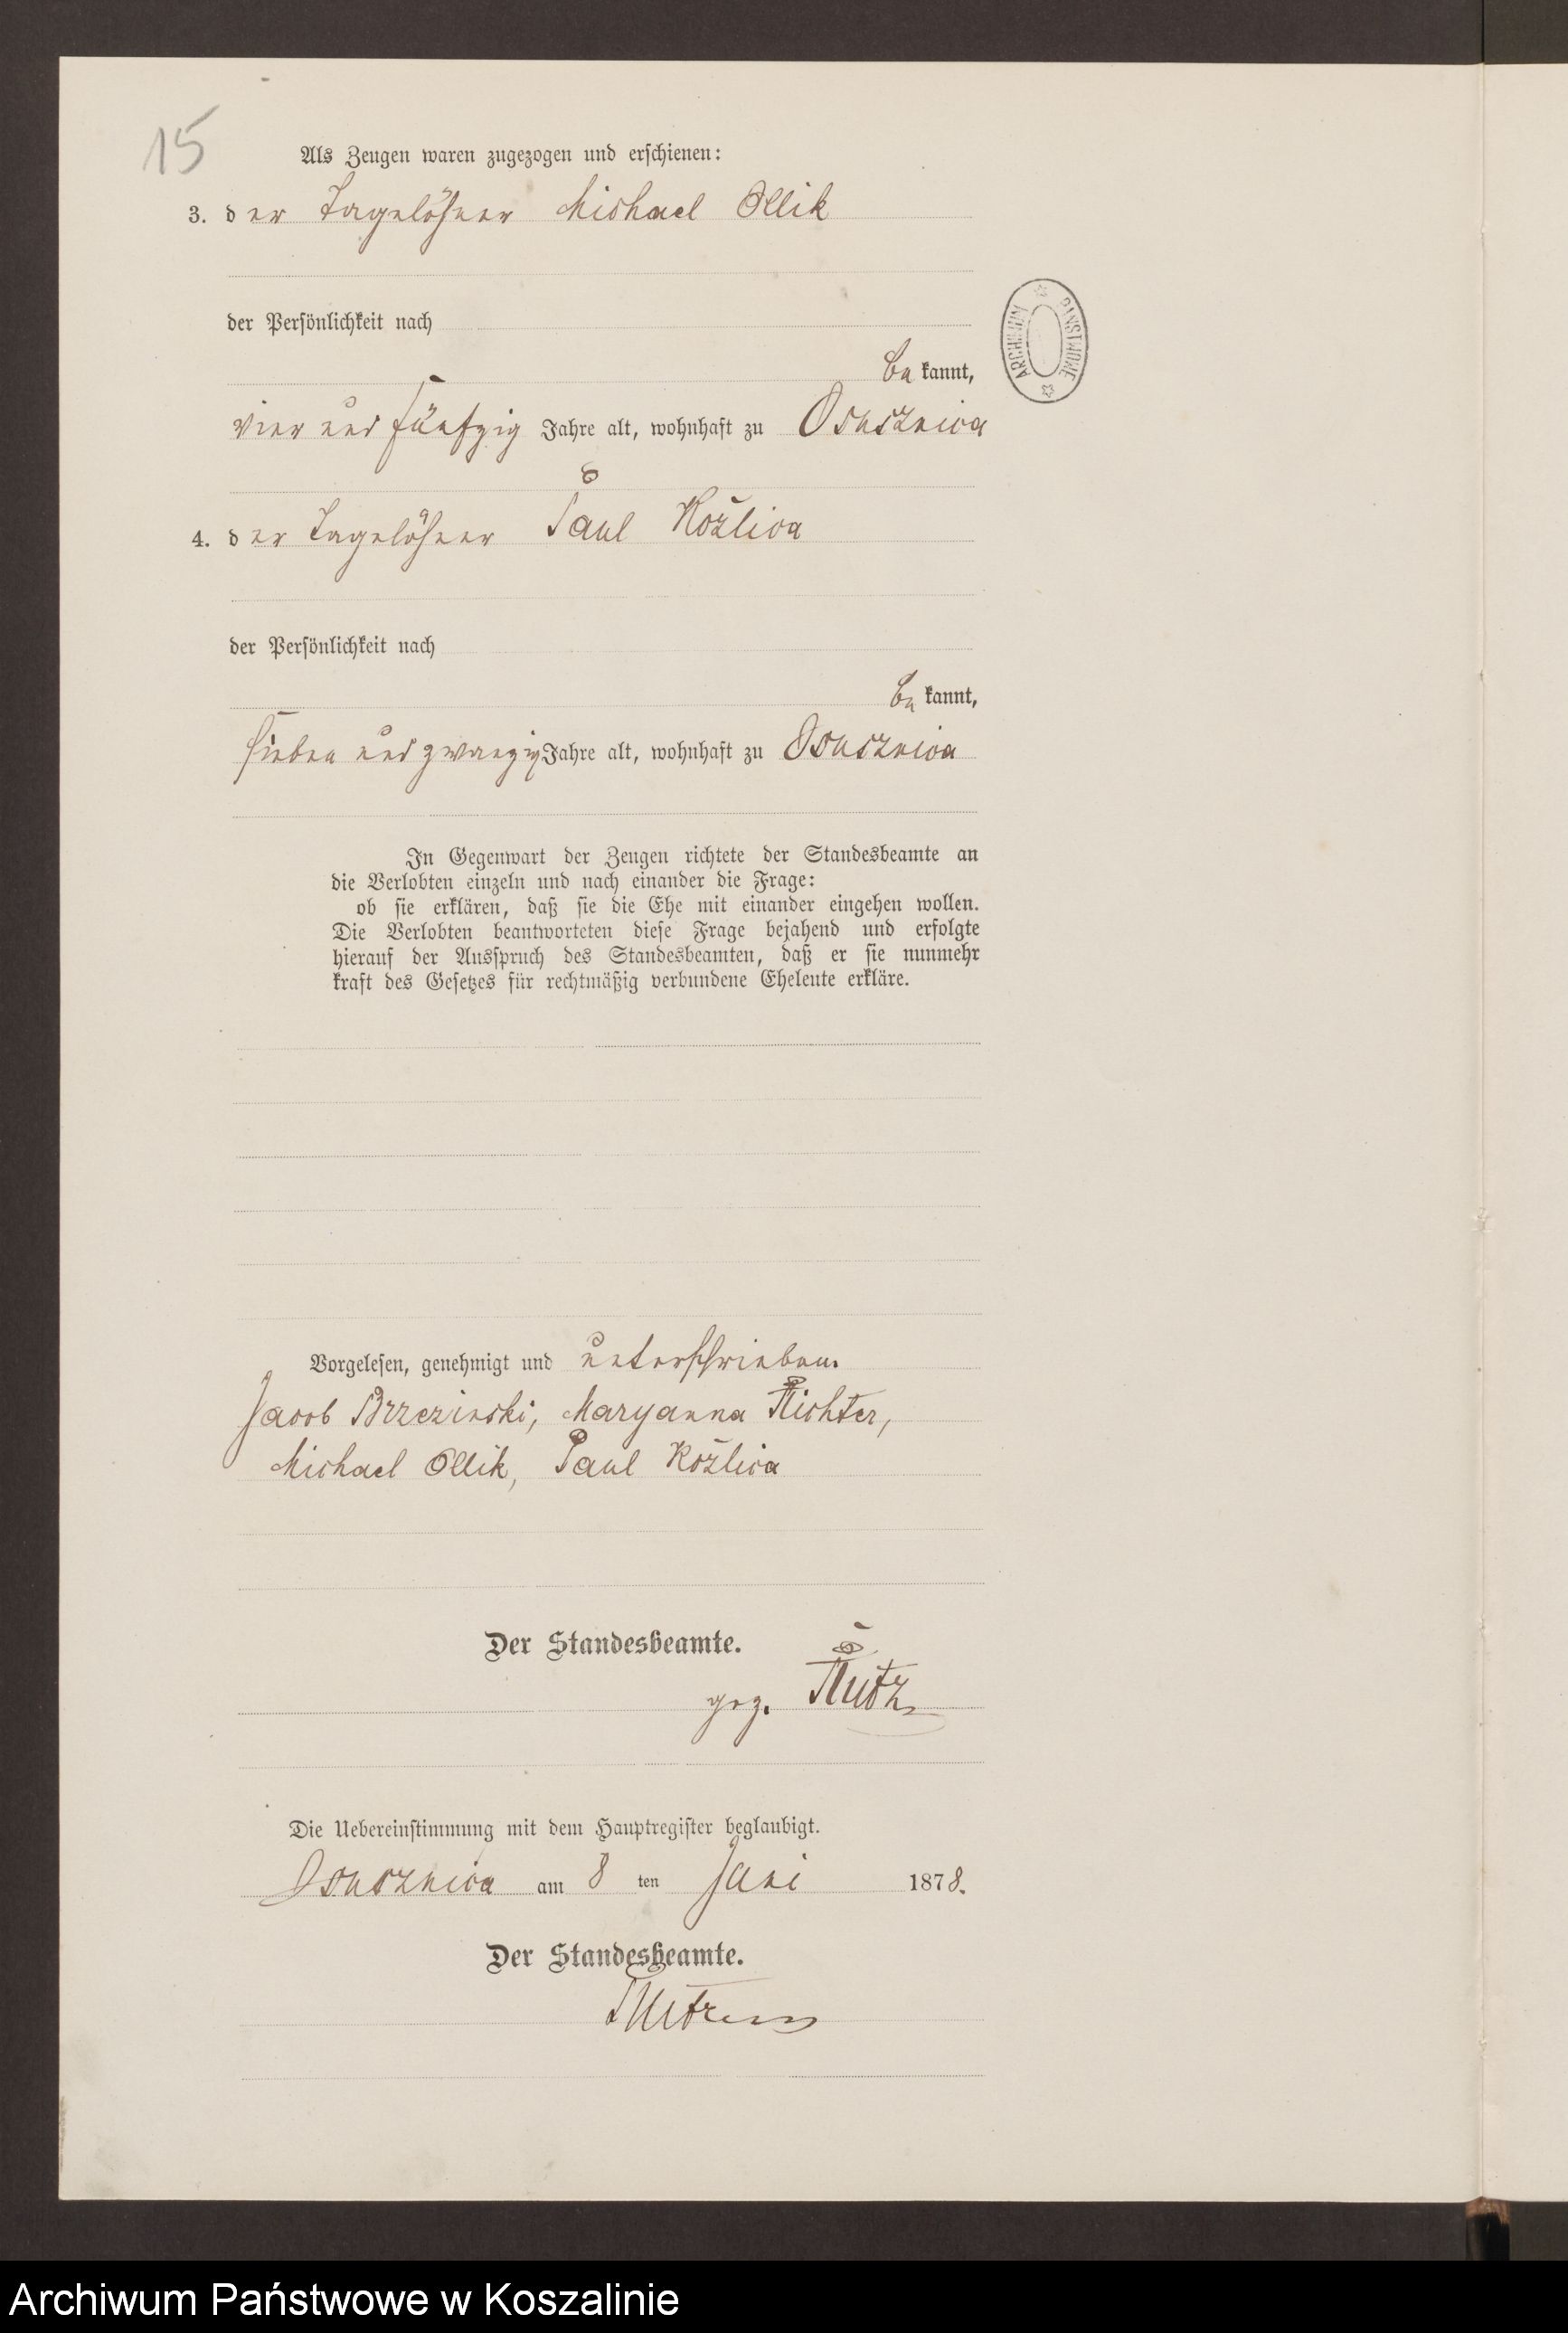 15
Als Zeugen waren zugezogen und erschienen:
3. der Tagelöhner Michael Ollik
der Persönlichkeit nach
bekannt,
vier und fünfzig Jahre alt, wohnhaft zu Osusznica
4. der Tagelöhner Paul Kožlica
der Persönlichkeit nach
bekannt,
sieben und zwanzig Jahre alt, wohnhaft zu Osusznica
In Gegenwart der Zeugen richtete der Standesbeamte an
die Verlobten einzeln und nach einander die Frage:
ob sie erklären, daß sie die Ehe mit einander eingehen wollen.
Die Verlobten beantworteten diese Frage bejahend und erfolgte
hierauf der Ausspruch des Standesbeamten, daß er sie nunmehr
kraft des Gesetzes für rechtmäßig verbundene Eheleute erkläre.
Vorgelesen, genehmigt und unterschrieben.
Jacob Brzezinski, Maryanna Richter,
Michael Ollik, Paul Kožlica
Der Standesbeamte.
gez.
Die Uebereinstimmung mit dem Hauptregister beglaubigt.
Osusznica am 8 ten Juni 1878.
Der Standesbeamte.
ARCHIWUM PAŃSTWOWE
Archiwum Państwowe w Koszalinie